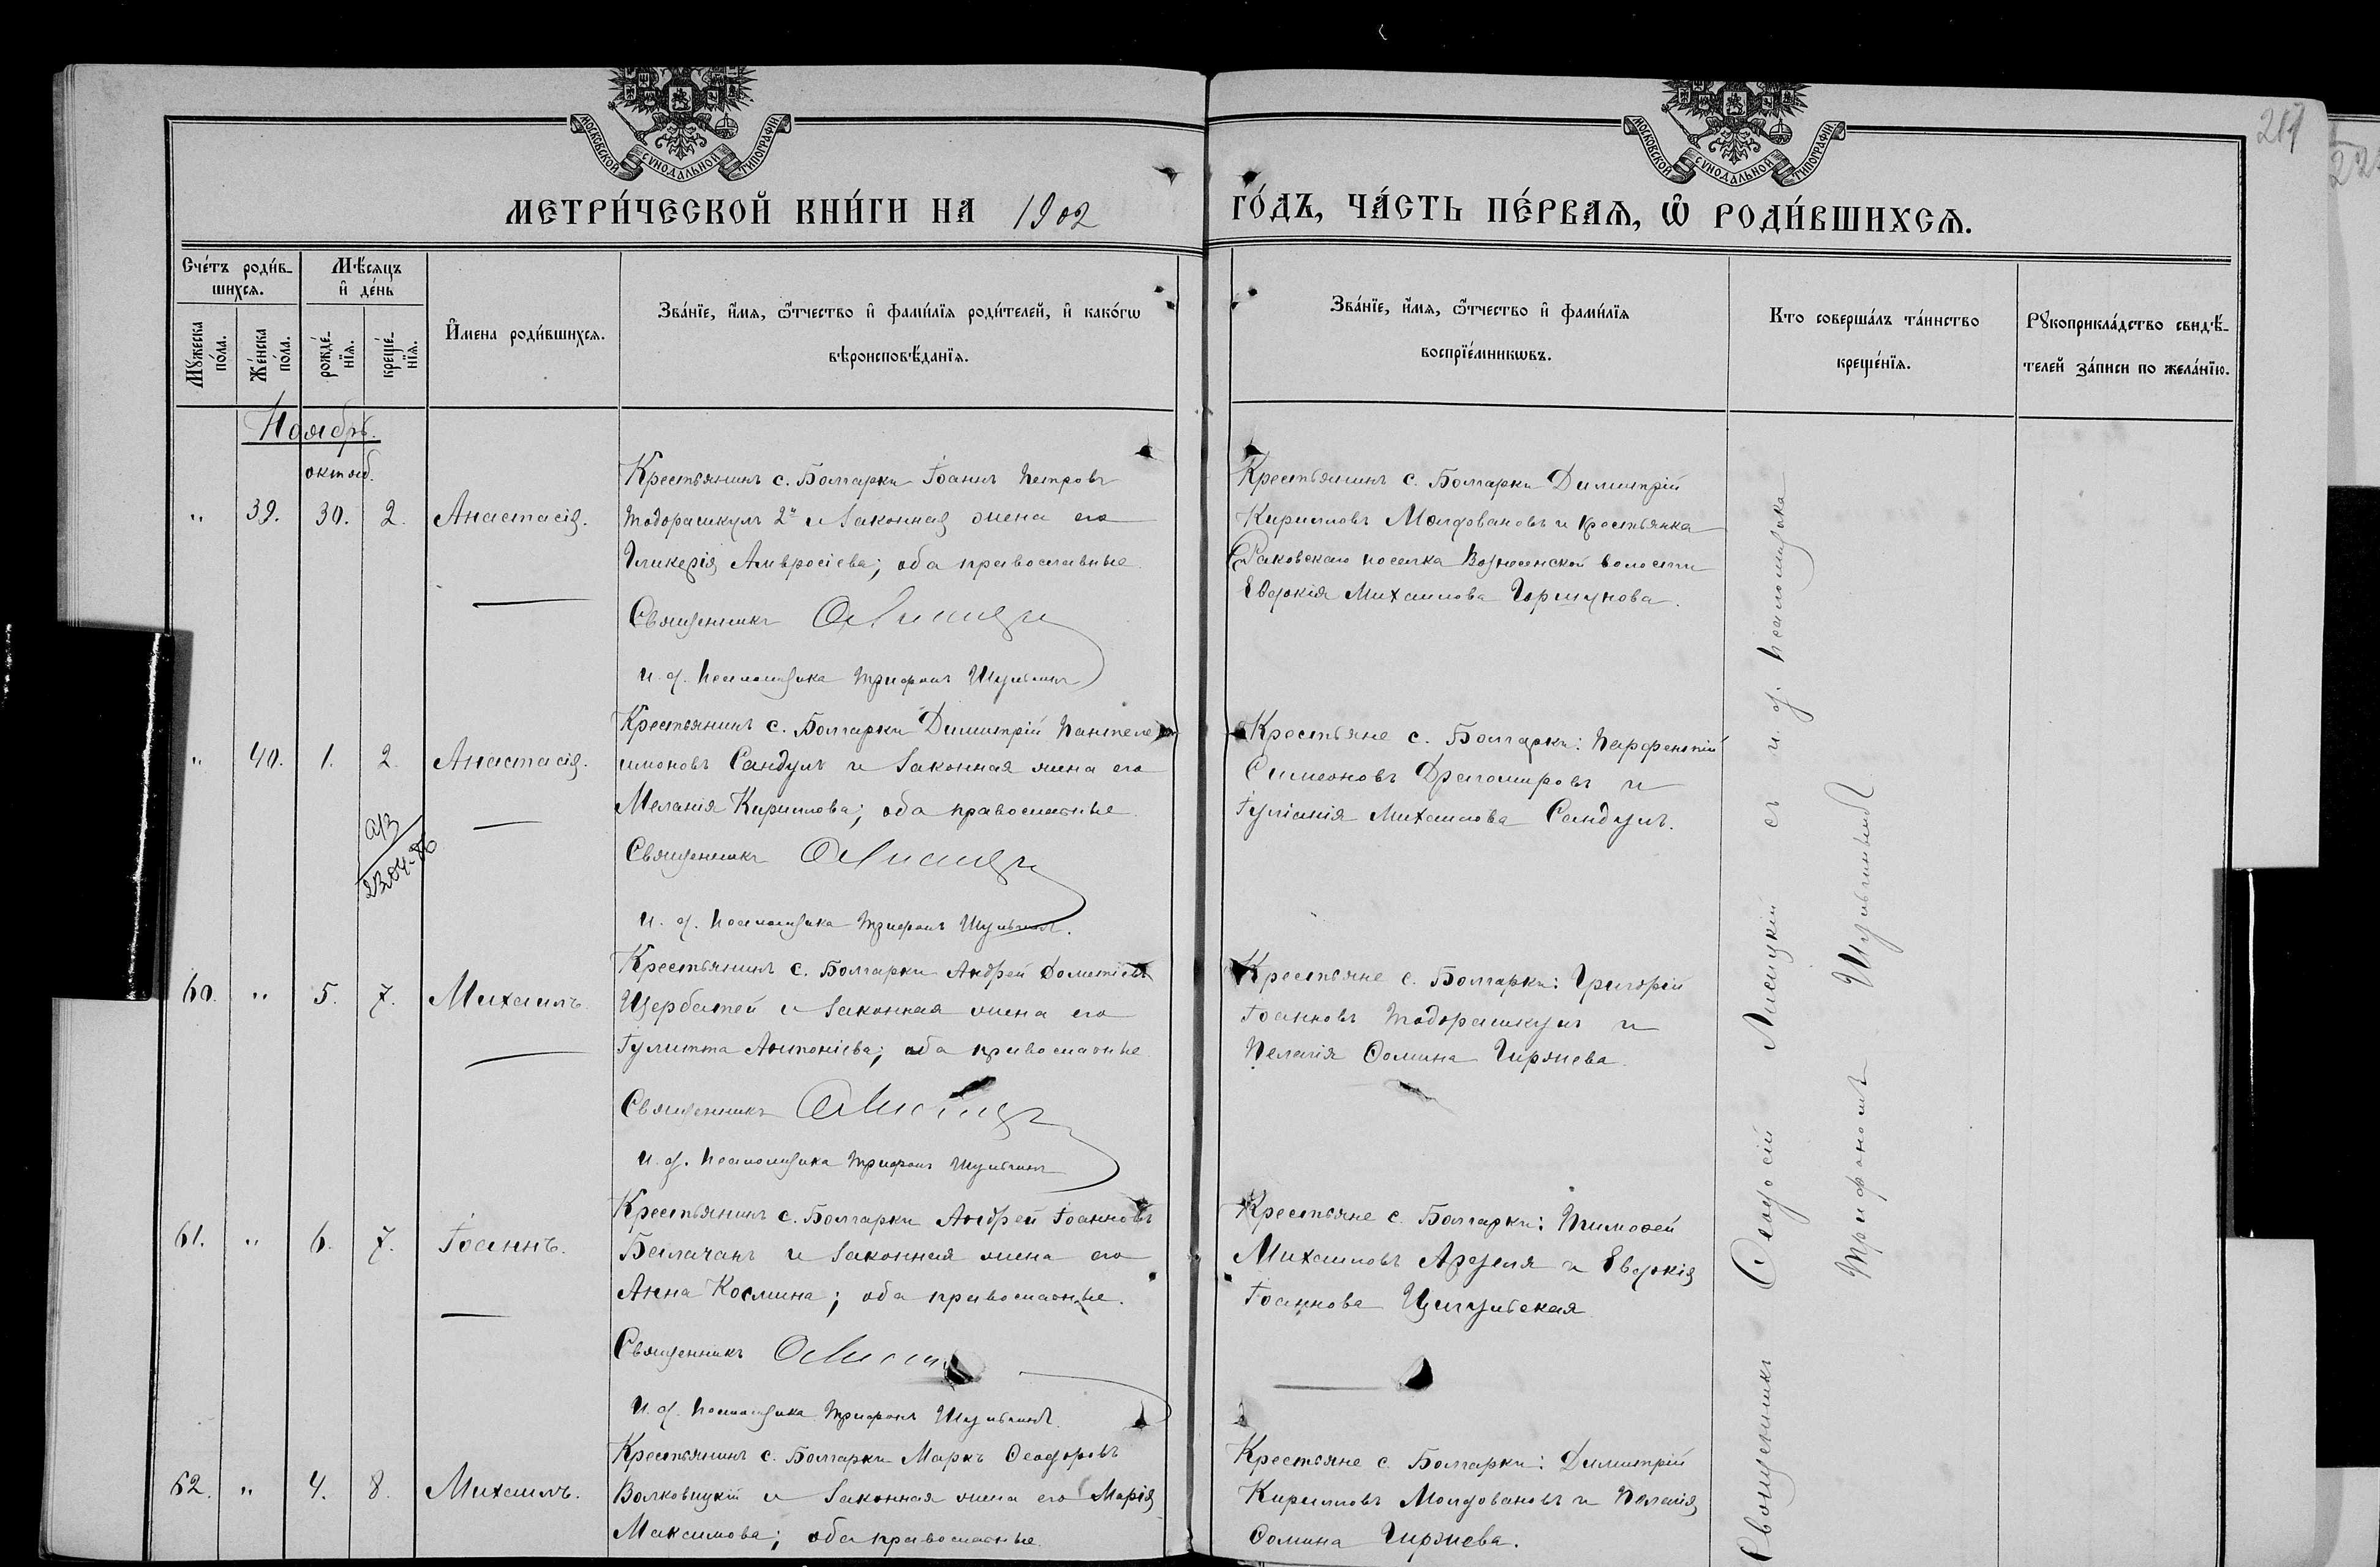 МОСКОВСКОЙ СѴНОДАЛЬНОЙ ТИПОГРАФІИ
МОСКОВСКОЙ СѴНОДАЛЬНОЙ ТИПОГРАФІИ
217
МЕТРИ́ЧЕСКОЙ КНИ́ГИ НА 1902 ГО́ДЪ, ЧА́СТЬ ПЕ́РВАѦ, Ѡ РОДИ́ВШИХСѦ.
Сче́тъ роди́в-
шихсѧ.
Мꙋжеска по́ла.
Же́нска по́ла.
Мѣ́сѧцъ и де́нь
рожде́-нїѧ.
креще́-нїѧ.
И҆мена роди́вшихсѧ.
Зва́нїе, и҆́мѧ, ѻ҆́тчество и҆ фами́лїѧ роди́телей, и҆ како́гѡ
вѣроисповѣ́данїѧ.
Зва́нїе, и҆́мѧ, ѻ҆́тчество и҆ фами́лїѧ
воспрїе́мникѡвъ.
Кто соверша́лъ та́инство
креще́нїѧ.
Рꙋкоприкла́дство свидѣ́-
телей за́писи по жела́нїю.
Ноябрь.
октяб.
" 39. 30. 2. Анастасія.
Крестьянинъ с. Болгарки Іоаннъ Петровъ
Тодорашкулъ 2й и законная жена его
Гликерія Амвросіева; оба православные.
Священникъ Ѳ Лисицкій
и. д. псаломщика Трифонъ Шульгинъ
Крестьянинъ с. Болгарки Димитрій
Кирилловъ Молдовановъ и крестьянка
Раковскаго поселка Вознесенской волости
Евдокія Михаилова Горшунова.
" 40. 1. 2. Анастасія.
Крестьянинъ с. Болгарки Димитрій Пантеле
имоновъ Сандулъ и законная жена его
Меланія Кириллова; оба православные.
Священникъ Ѳ Лисицкій
и. д. псаломщика Трифонъ Шульгинъ.
Крестьяне с. Болгарки: Парфентій
Симеоновъ Драгомировъ и
Іуліанія Михаилова Сандулъ.
60. " 5. 7. Михаилъ.
Крестьянинъ с. Болгарки Андрей Дометіевъ
Щербатей и законная жена его
Іулитта Антоніева; оба православные
Священникъ Ѳ Лисицкій
и. д. псаломщика Трифонъ Шульгинъ
Крестьяне с. Болгарки: Григорій
Іоанновъ Тодорашкулъ и
Пелагія Ѳомина Гиржева.
61. " 6. 7. Іоаннъ.
Крестьянинъ с. Болгарки Андрей Іоанновъ
Балачанъ и законная жена его
Анна Космина; оба православные.
Священникъ Ѳ Лисицкій
и. д. псаломщика Трифонъ Шульгинъ.
Крестьяне с. Болгарки: Тимоѳей
Михаиловъ и Евдокія
Іоаннова Цигульская
62. " 4. 8. Михаилъ.
Крестьянинъ с. Болгарки Маркъ Ѳеодоровъ
Волковицкій и законная жена его Марія
Максимова; оба православные.
Крестьяне с. Болгарки: Димитрій
Кирилловъ Молдовановъ и Пелагія
Ѳомина Гиржева.
Священникъ Ѳеодосій Лисицкій съ и. д. псаломщика
Трифономъ Шульгинымъ